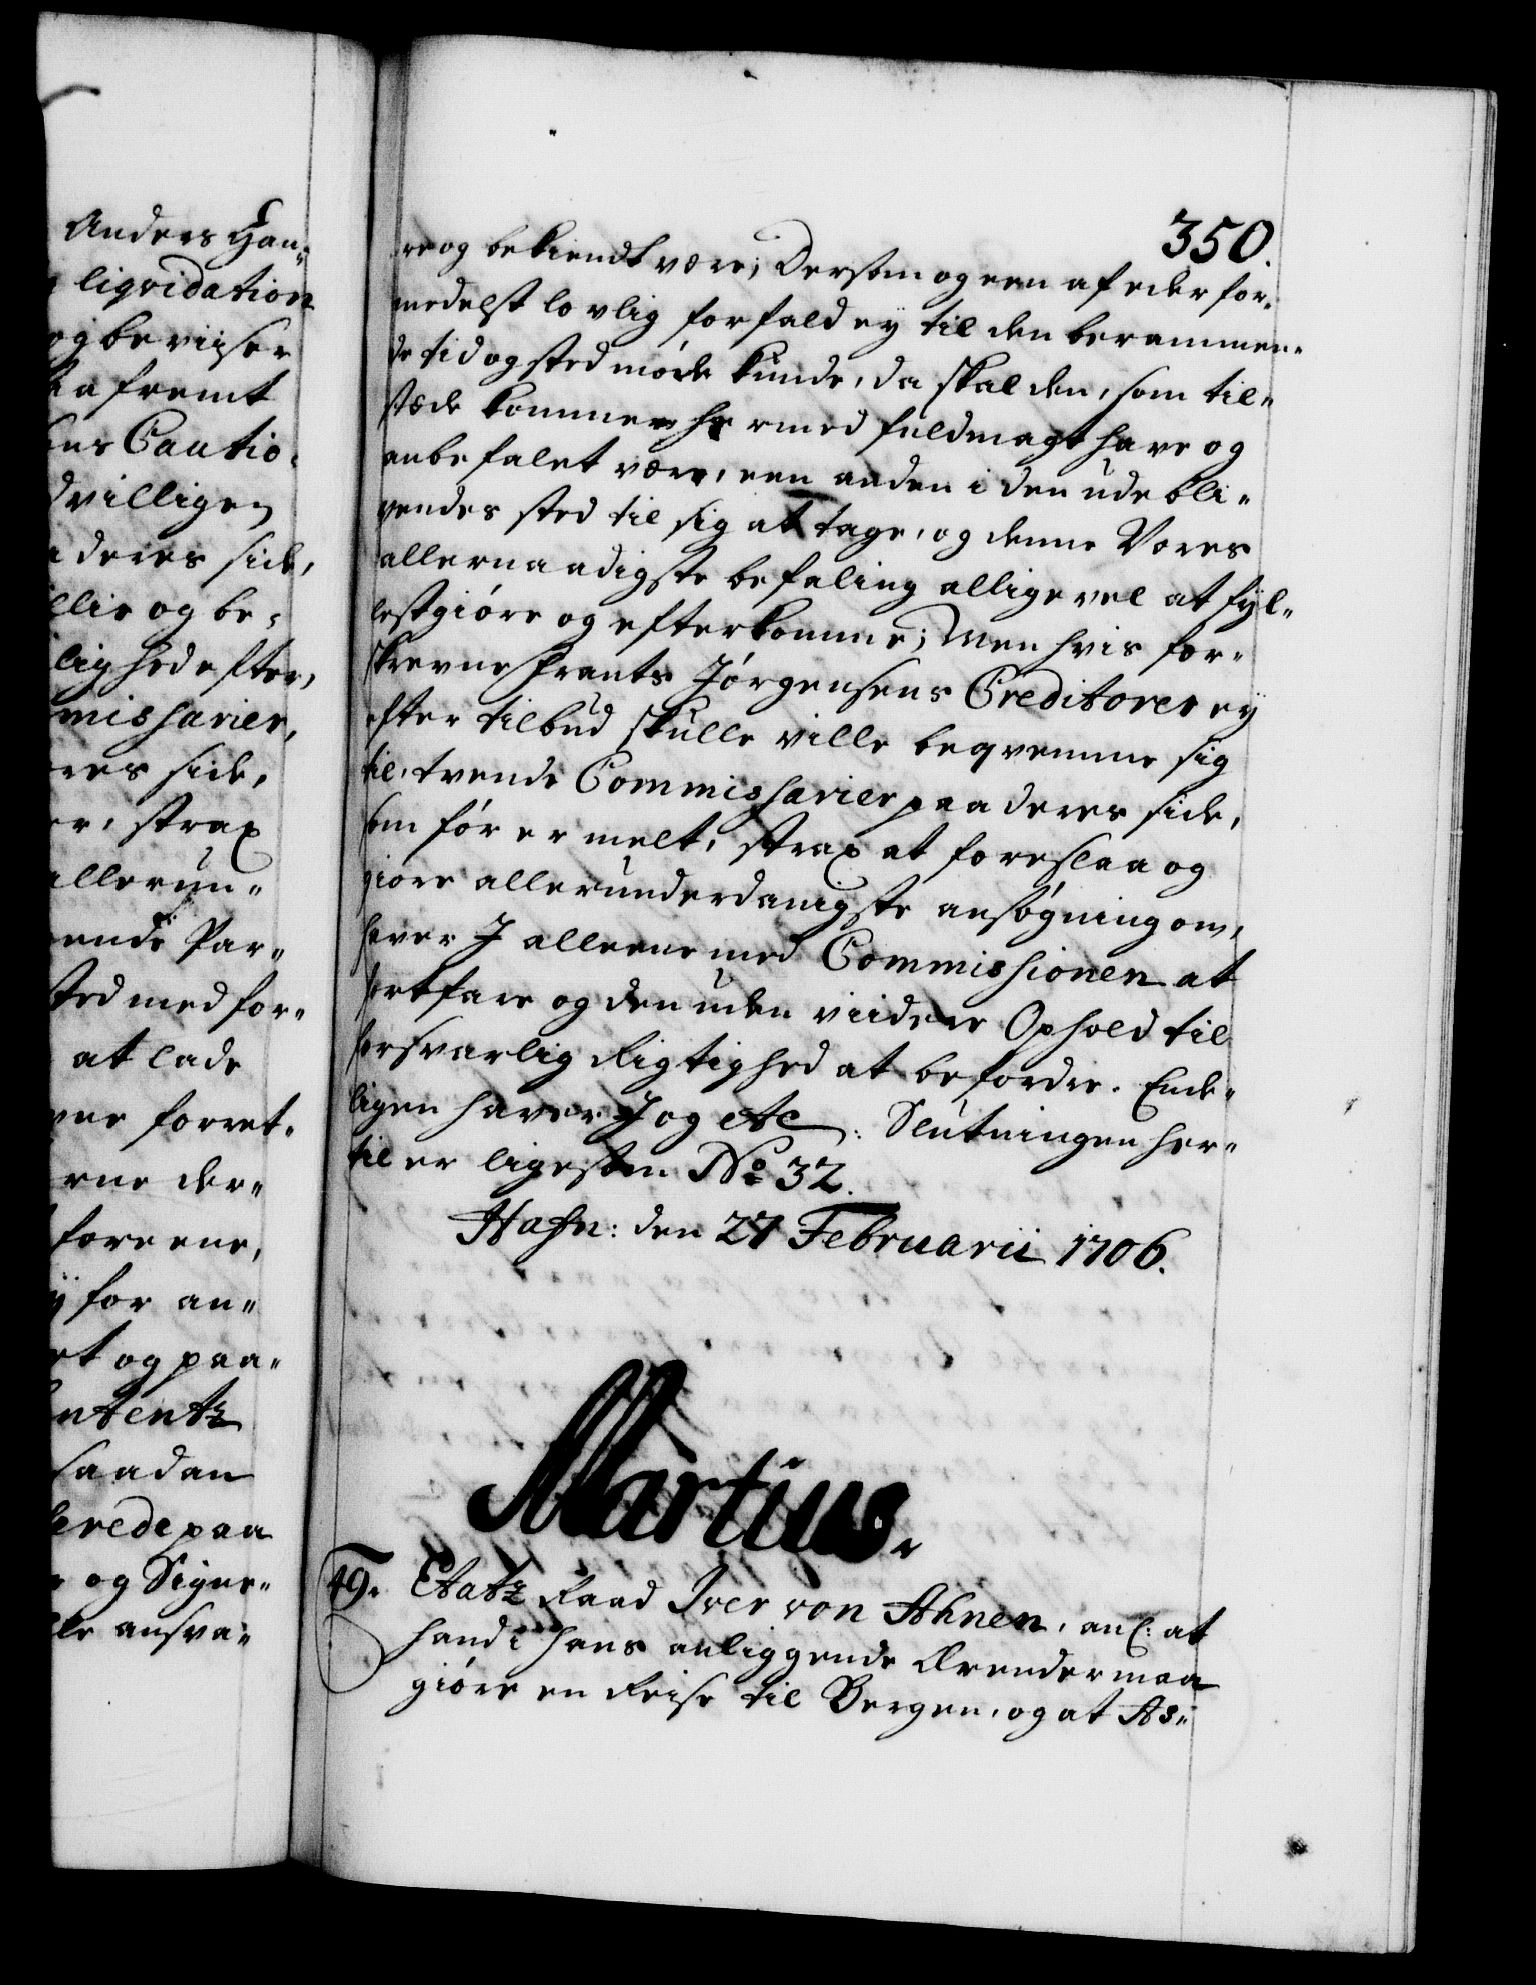 Anders Han-
liqvidation
og beviiser
fremt
Cautio-
dvilligen
deres side,
og be-
lighed efter,
missarier,
res side,
strax
allerun-
ende Par-
sted med for-
at lade
forret-
der-
foreene,
for an-
og paa-
saadan
paa
og Signe-
ansva-
350.
re og bekiendt være; Dersom og een af eder for-
medelst lovlig forfald ey til den berammen-
de tid og sted møde kunde, da skal den, som til-
stæde kommer hermed fuldmagt have og
anbefalet være, een anden i den udebli-
vendes sted til sig at tage, og denne Vores
allernaadigste befaling alligevel at fyl-
lestgiøre og efterkomme; Men hvis for-
skrevne Frants Jørgensens Creditorer ey
efter tilbud skulle ville beqvemme sig
til, tvende Commissarier paa deres side,
som før er melt, strax at foreslaa og
giøre allerunderdanigste ansøgning om,
haver I alleene med Commissionen at
fortfare og den uden viidere Ophold til
forsvarlig Rigtighed at befordre. Ende-
ligen haver I og etc: Slutningen her-
til er ligesom No 32.
Hafn: den 27 Februarii 1706.
Martius.
49. Etatz Raad Iver von Ahnen, anl: at
hand i hans anliggende Ærender maa
giøre en Reise til Bergen, og at As-